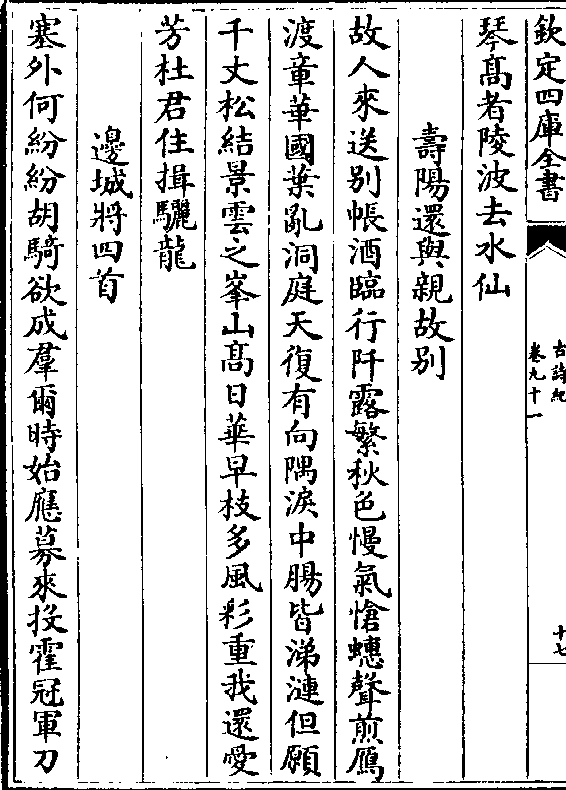 欽定四庫全書
古詩紀
卷九十一
十七
琴髙者陵波去水仙
壽陽還與親故别
故人來送别帳酒臨行阡露繁秋色慢氣愴蟪聲煎鴈
渡章華國葉亂洞庭天復有向隅淚中腸皆涕漣但願
千丈松結景雲之峯山髙日華早枝多風彩重我還愛
芳杜君住揖驪龍
邊城將四首
塞外何紛紛胡騎欲成羣爾時始應募來投霍冠軍刀